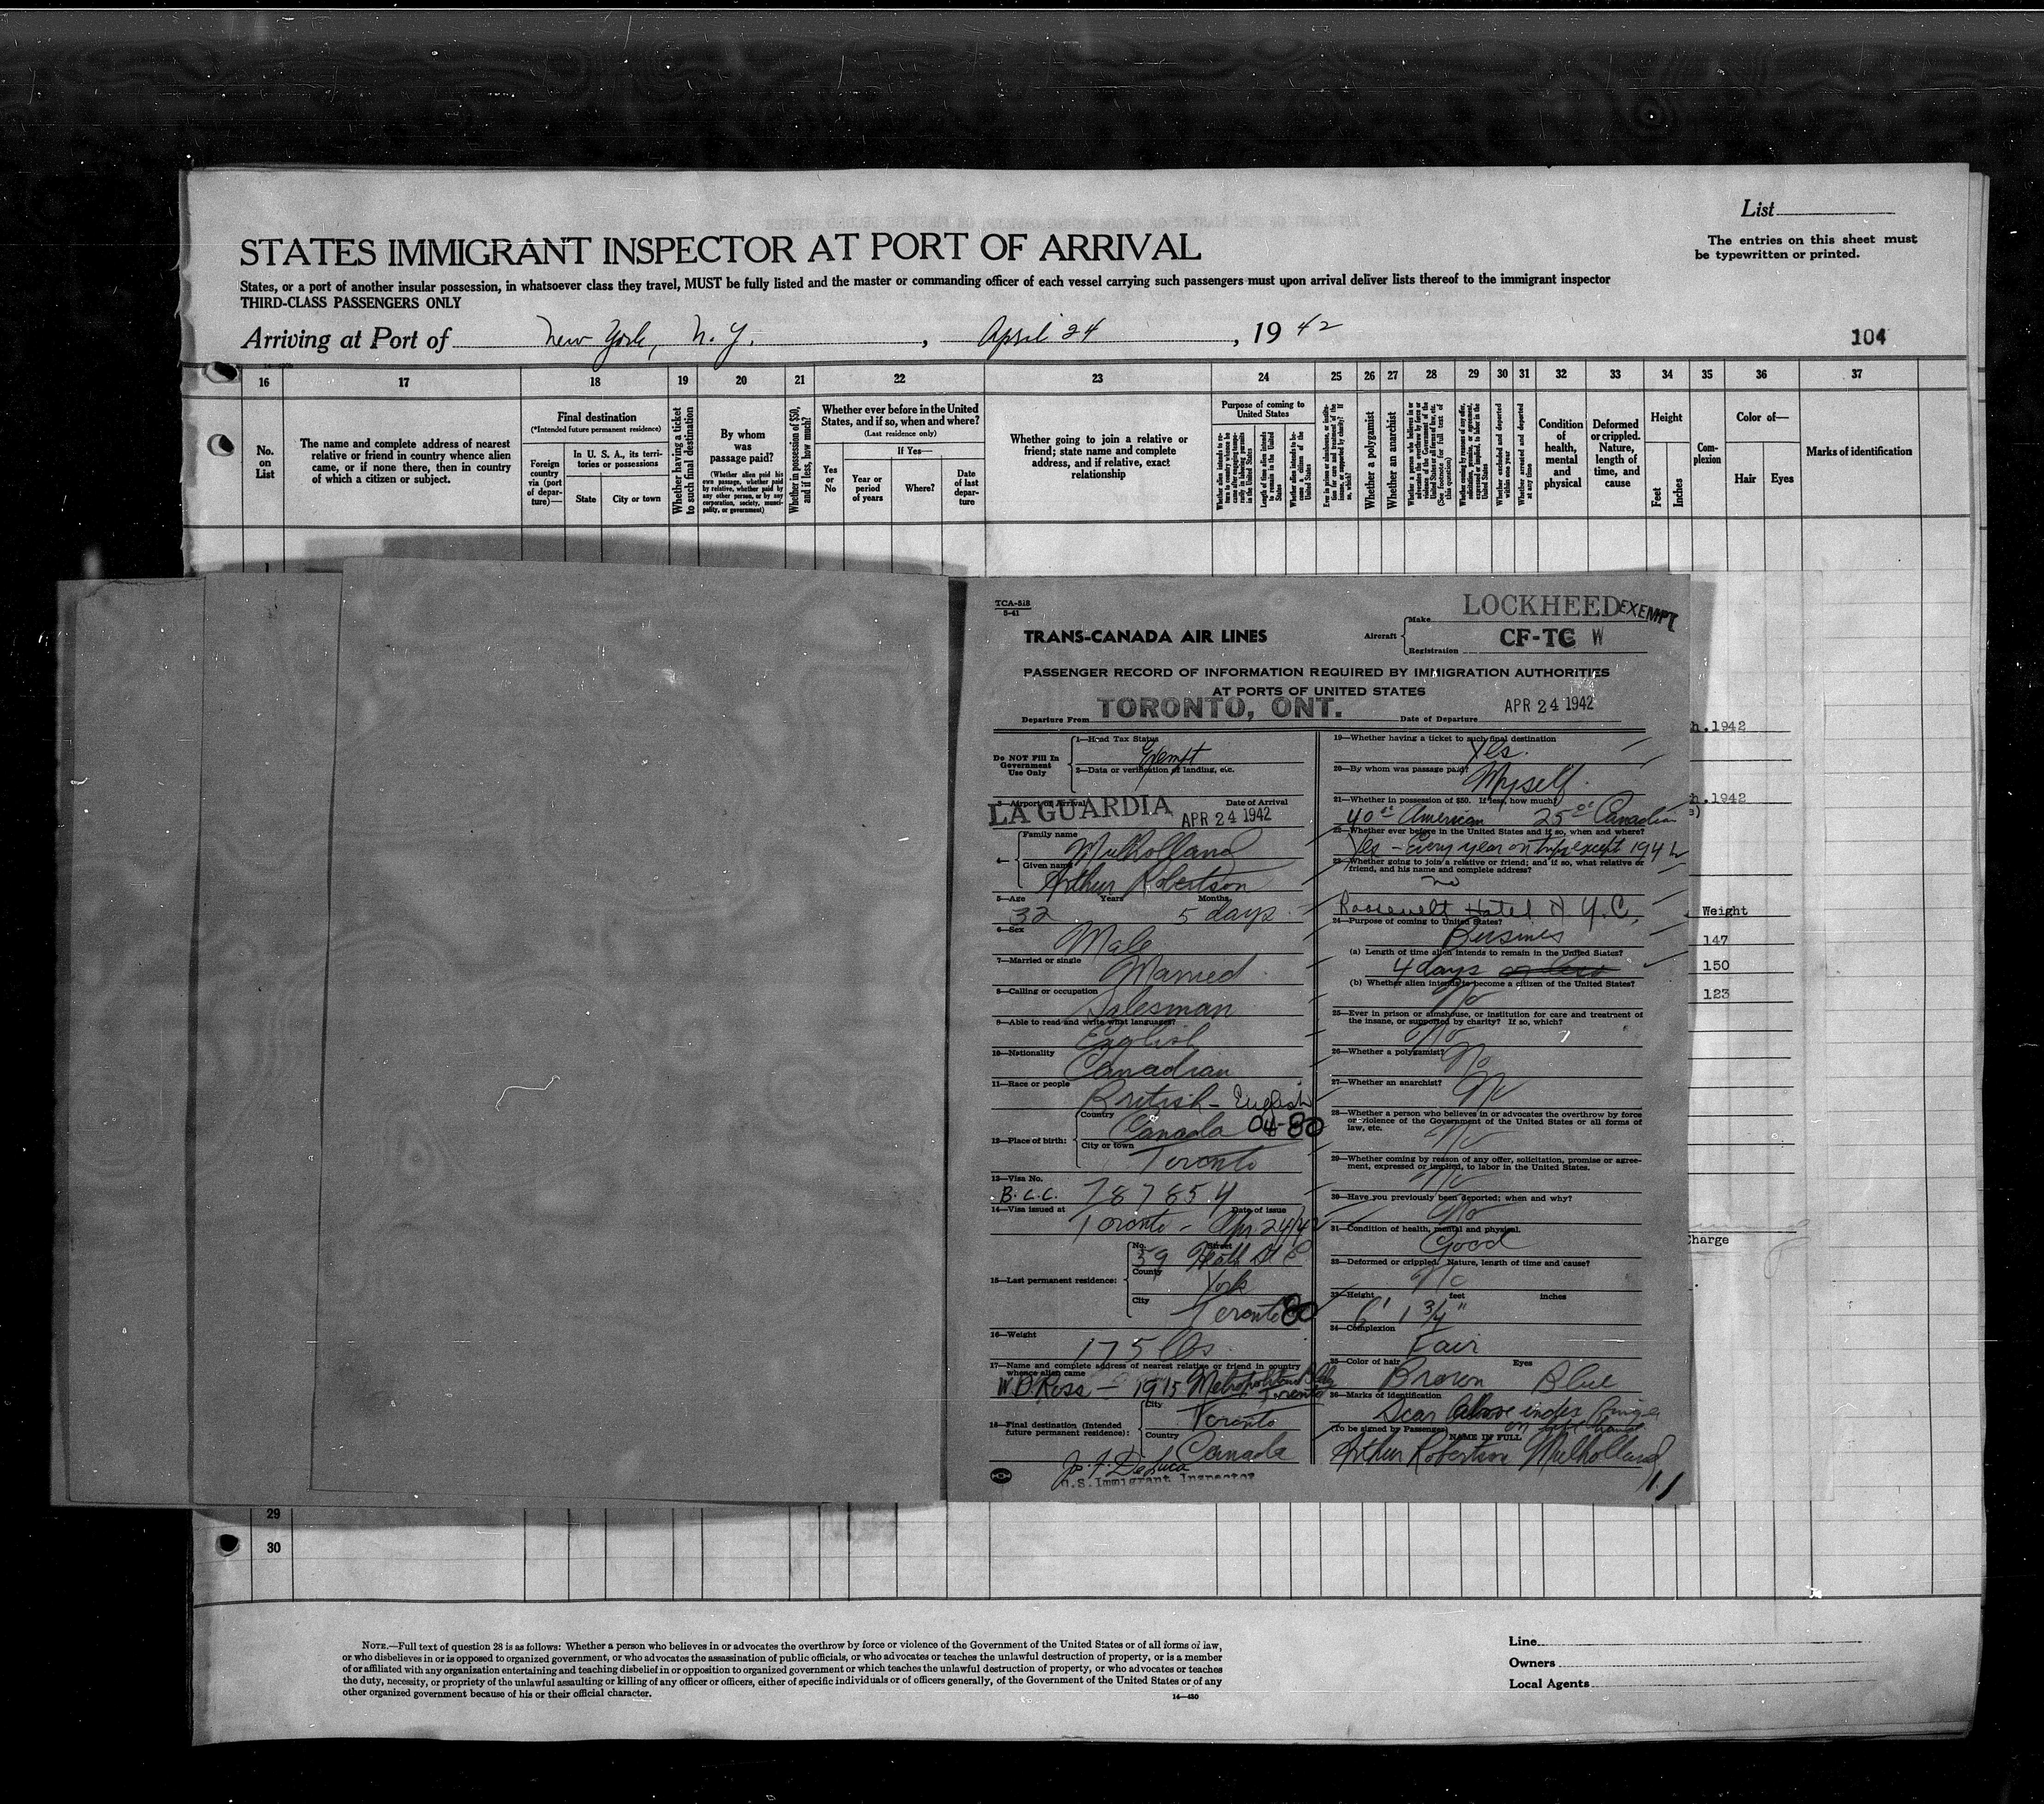 List
The entries on this sheet must
be typewritten or printed.
STATES IMMIGRANT INSPECTOR AT PORT OF ARRIVAL
States, or a port of another insular possession, in whatsoever class they travel, MUST be fully listed and the master or commanding officer of each vessel carrying such passengers must upon arrival deliver lists thereof to the immigrant inspector
THIRD-CLASS PASSENGERS ONLY
Arriving at Port of New York, N. Y. , April 24 , 19 42
104
16 17 18 19 20 21 22 23 24 25 26 27 28 29 30 31 32 33 34 35 36 37
No. on List
The name and complete address of nearest relative or friend in country whence alien came, or if none there, then in country of which a citizen or subject.
Final destination
(*Intended future permanent residence)
Foreign country via (port of departure)—
In U. S. A., its territories or possessions
State
City or town
Whether having a ticket to such final destination
By whom was passage paid?
(Whether alien paid his own passage, whether paid by relative, whether paid by any other person, or by any corporation, society, municipality, or government)
Whether in possession of $50, and if less, how much?
Whether ever before in the United States, and if so, when and where?
(Last residence only)
Yes or No
If Yes—
Year or period of years
Where?
Date of last departure
Whether going to join a relative or friend; state name and complete address, and if relative, exact relationship
Purpose of coming to United States
Length of time alien intends to remain in the United States
Whether alien intends to become a citizen of the United States
Whether a polygamist
Whether an anarchist
Whether arrested and deported at any time
Condition of health, mental and physical
Deformed or crippled. Nature, length of time, and cause
Height
Feet
Inches
Complexion
Color of—
Hair
Eyes
Marks of identification
TCA-518
5-41
TRANS-CANADA AIR LINES
Aircraft
Make LOCKHEED
EXEMPT
Registration CF-TC W
PASSENGER RECORD OF INFORMATION REQUIRED BY IMMIGRATION AUTHORITIES
AT PORTS OF UNITED STATES
Departure From TORONTO, ONT.
Date of Departure APR 24 1942
Do NOT Fill In
Government
Use Only
1—Head Tax Status
Exempt
2—Data or verification of landing, etc.
3—Airport of Arrival
LA GUARDIA
Date of Arrival
APR 24 1942
4—
Family name
Mulholland
Given name
Arthur Robertson
5—Age Years Months
32 5 days
6—Sex
Male
7—Married or single
Married
8—Calling or occupation
Salesman
9—Able to read and write what languages?
English
10—Nationality
Canadian
11—Race or people
British - English
12—Place of birth:
Country
Canada 04-80
City or town
Toronto
13—Visa No.
B.C.C. 787854
14—Visa issued at Date of issue
Toronto - Apr. 24/42
15—Last permanent residence:
No. Street
59 Heath St E
County
York
City
Toronto 80
16—Weight
175 lbs.
17—Name and complete address of nearest relative or friend in country
whence alien came
W.D. Ross - 1915 Metropolitan Bldg
Toronto
18—Final destination (Intended
future permanent residence):
City
Toronto
Country
Canada
Jo. F. DeLuca
U.S. Immigrant Inspector
19—Whether having a ticket to such final destination
Yes.
20—By whom was passage paid?
Myself.
21—Whether in possession of $50. If less, how much?
40 American 25 Canadian
22—Whether ever before in the United States and if so, when and where?
Yes - Every year on trips except 1942
23—Whether going to join a relative or friend; and if so, what relative or
friend, and his name and complete address?
no
Roosevelt Hotel N.Y.C.
24—Purpose of coming to United States?
Business
(a) Length of time alien intends to remain in the United States?
4 days or less
(b) Whether alien intends to become a citizen of the United States?
No
25—Ever in prison or almshouse, or institution for care and treatment of
the insane, or supported by charity? If so, which?
No
26—Whether a polygamist?
No
27—Whether an anarchist?
No
28—Whether a person who believes in or advocates the overthrow by force
or violence of the Government of the United States or all forms of
law, etc.
No
29—Whether coming by reason of any offer, solicitation, promise or agree-
ment, expressed or implied, to labor in the United States.
No
30—Have you previously been deported; when and why?
No
31—Condition of health, mental and physical.
Good
32—Deformed or crippled. Nature, length of time and cause?
No
33—Height feet inches
6' 1 3/4"
34—Complexion
Fair
35—Color of hair Eyes
Brown Blue
36—Marks of identification
Scar above index finger
on left hand
(To be signed by Passenger) NAME IN FULL
Arthur Robertson Mulholland
11
h.1942
h.1942
Weight
147
150
123
Charge
29
30
NOTE.—Full text of question 28 is as follows: Whether a person who believes in or advocates the overthrow by force or violence of the Government of the United States or of all forms of law,
or who disbelieves in or is opposed to organized government, or who advocates the assassination of public officials, or who advocates or teaches the unlawful destruction of property, or is a member
of or affiliated with any organization entertaining and teaching disbelief in or opposition to organized government or which teaches the unlawful destruction of property, or who advocates or teaches
the duty, necessity, or propriety of the unlawful assaulting or killing of any officer or officers, either of specific individuals or of officers generally, of the Government of the United States or of any
other organized government because of his or their official character.
14—430
Line
Owners
Local Agents